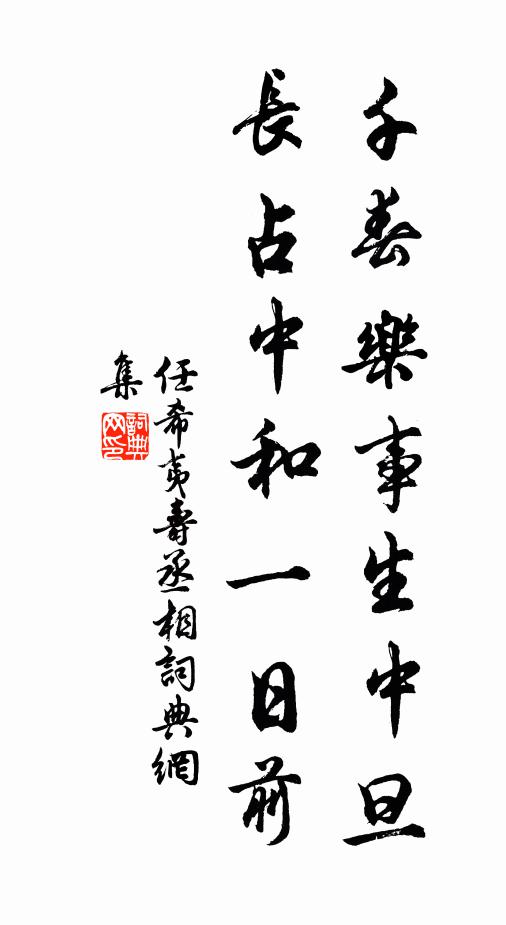 千春樂事生中旦
長占中和一日前
任希夷壽丞相詞典網
集
詞典
网印